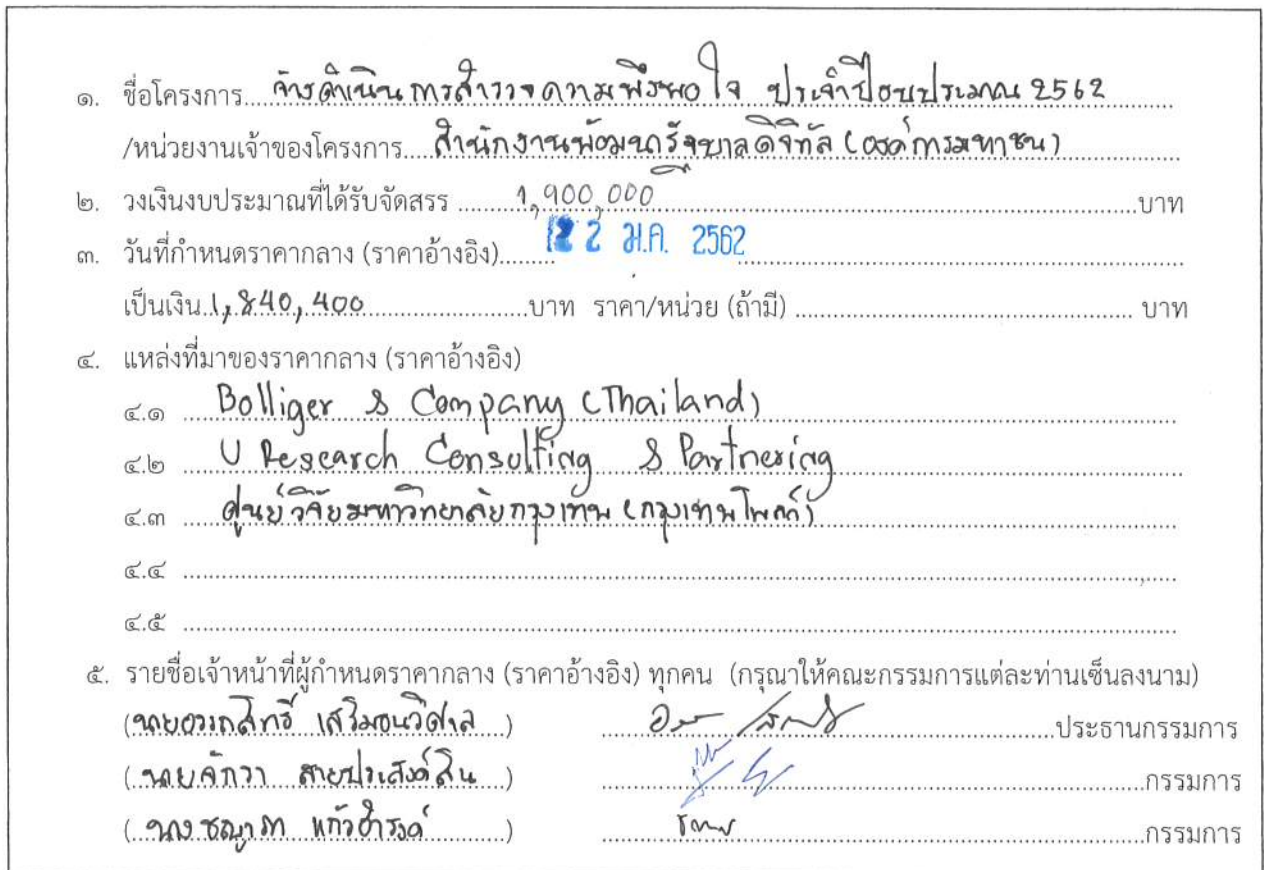 ๑. ชื่อโครงการ....จ้างดำเนินการสำรวจความพึงพอใจ ประจำปีงบประมาณ 2562
/หน่วยงานเจ้าของโครงการ....สำนักงานพัฒนารัฐบาลดิจิทัล (องค์การมหาชน)
๒. วงเงินงบประมาณที่ได้รับจัดสรร ........1,900,000........บาท
๓. วันที่กำหนดราคากลาง (ราคาอ้างอิง)........2 2 ม.ค. 2562........
เป็นเงิน..1,840,400........บาท ราคา/หน่วย (ถ้ามี) ........ บาท
๔. แหล่งที่มาของราคากลาง (ราคาอ้างอิง)
๔.๑ Bolliger & Company (Thailand)
๔.๒ U Research Consulting & Partnering
๔.๓ ศูนย์วิจัยมหาวิทยาลัยกรุงเทพ (กรุงเทพโพลล์)
๔.๔ ........
๔.๕ ........
๕. รายชื่อเจ้าหน้าที่ผู้กำหนดราคากลาง (ราคาอ้างอิง) ทุกคน (กรุณาให้คณะกรรมการแต่ละท่านเซ็นลงนาม)
(นายอรรถสิทธิ์ เสริมธนวิศาล) ........ประธานกรรมการ
(นายจักวา สายประสงค์สิน) ........กรรมการ
(นางชญาภา แก้วธำรงค์) ........กรรมการ